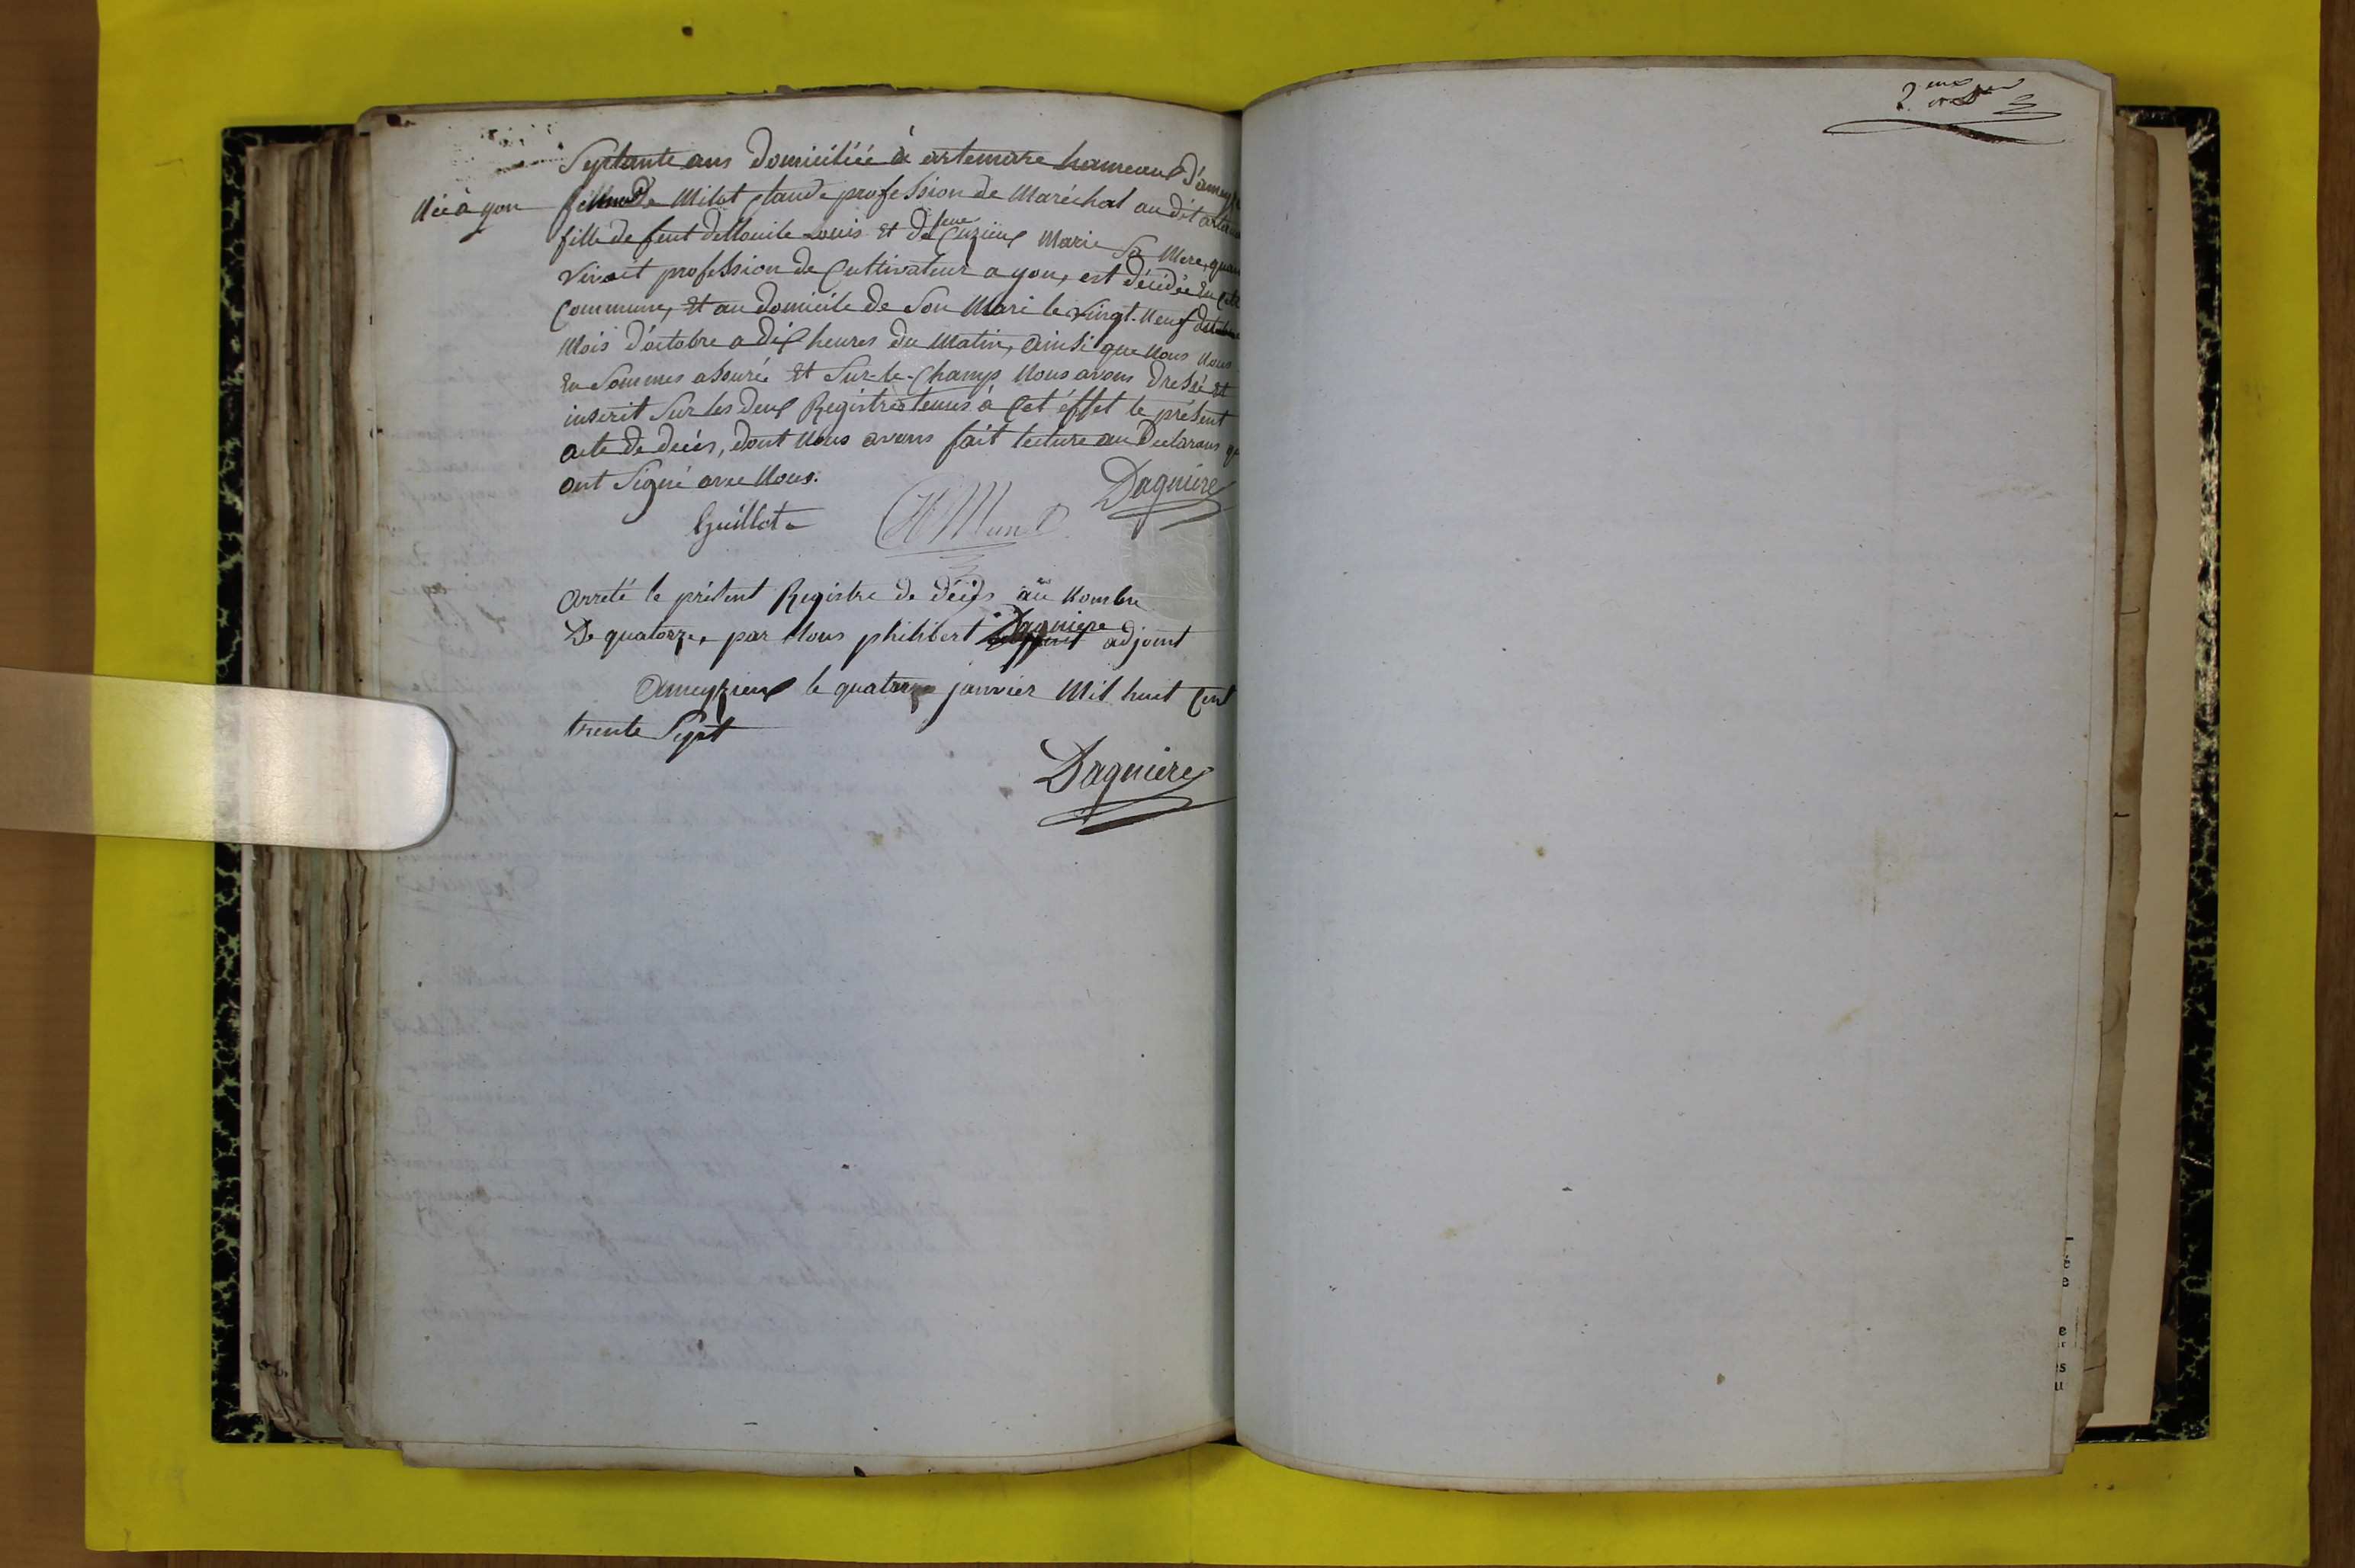 Septante ans domiciliée à artemare hameau d'ameyz
Née à yon
femme de Milet Claude profession de Maréchal au dit artem
fille de feut dellouile Louis Et de feue Cuzieux Marie Sa Mere, quan
vivait profession de Cultivateur a yon, est décédée En cette
Commune, Et au domicile de Son Mari le vingt-neuf
Mois d'octobre a dix heures du Matin, ainsi que Nous Nous
En Sommes assuré Et Sur-le-Champ Nous avons dressé Et
inscrit Sur les deux Registres tenus à Cet éffet le présent
acte de décès, dont Nous avons fait lecture au Declarans q
ont Signé avec Nous.
Daguiere
Guillot
Arreté le présent Registre de décès au Nombre
De quatorze, par Nous philibert Daguiere adjoint
Ameyzieux le quatorze janvier Mil huit Cent
trente Sept
Daguiere
2.eme